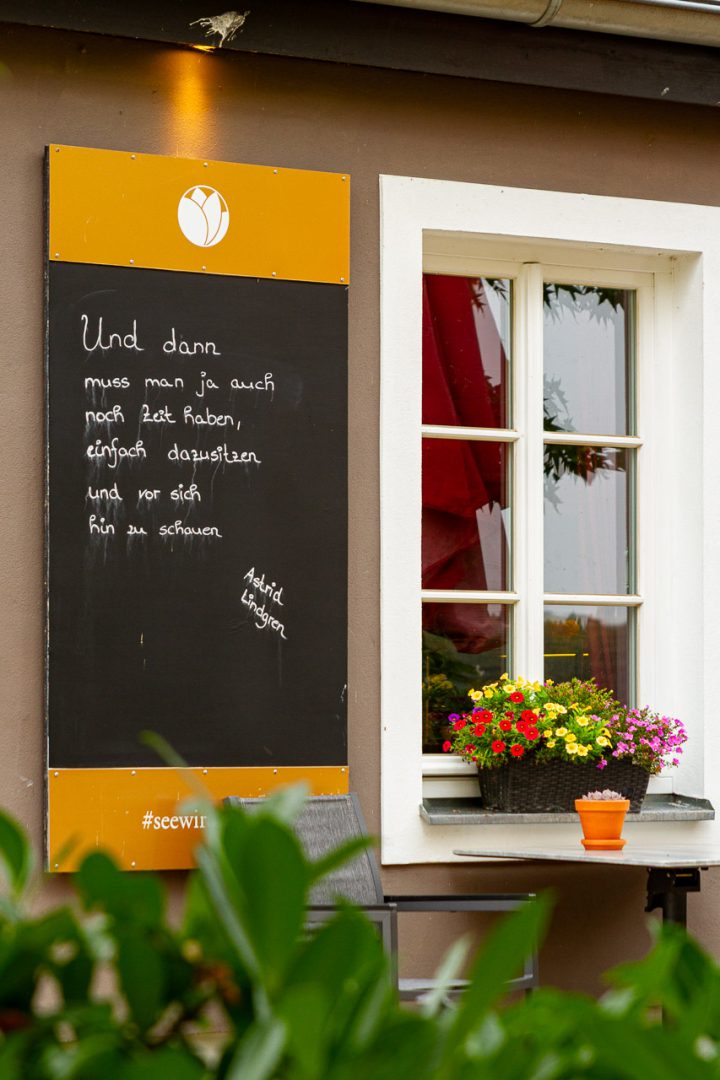 Und dann
muss man ja auch
noch Zeit haben,
einfach dazusitzen
und vor sich
hin zu schauen
Astrid
Lindgren